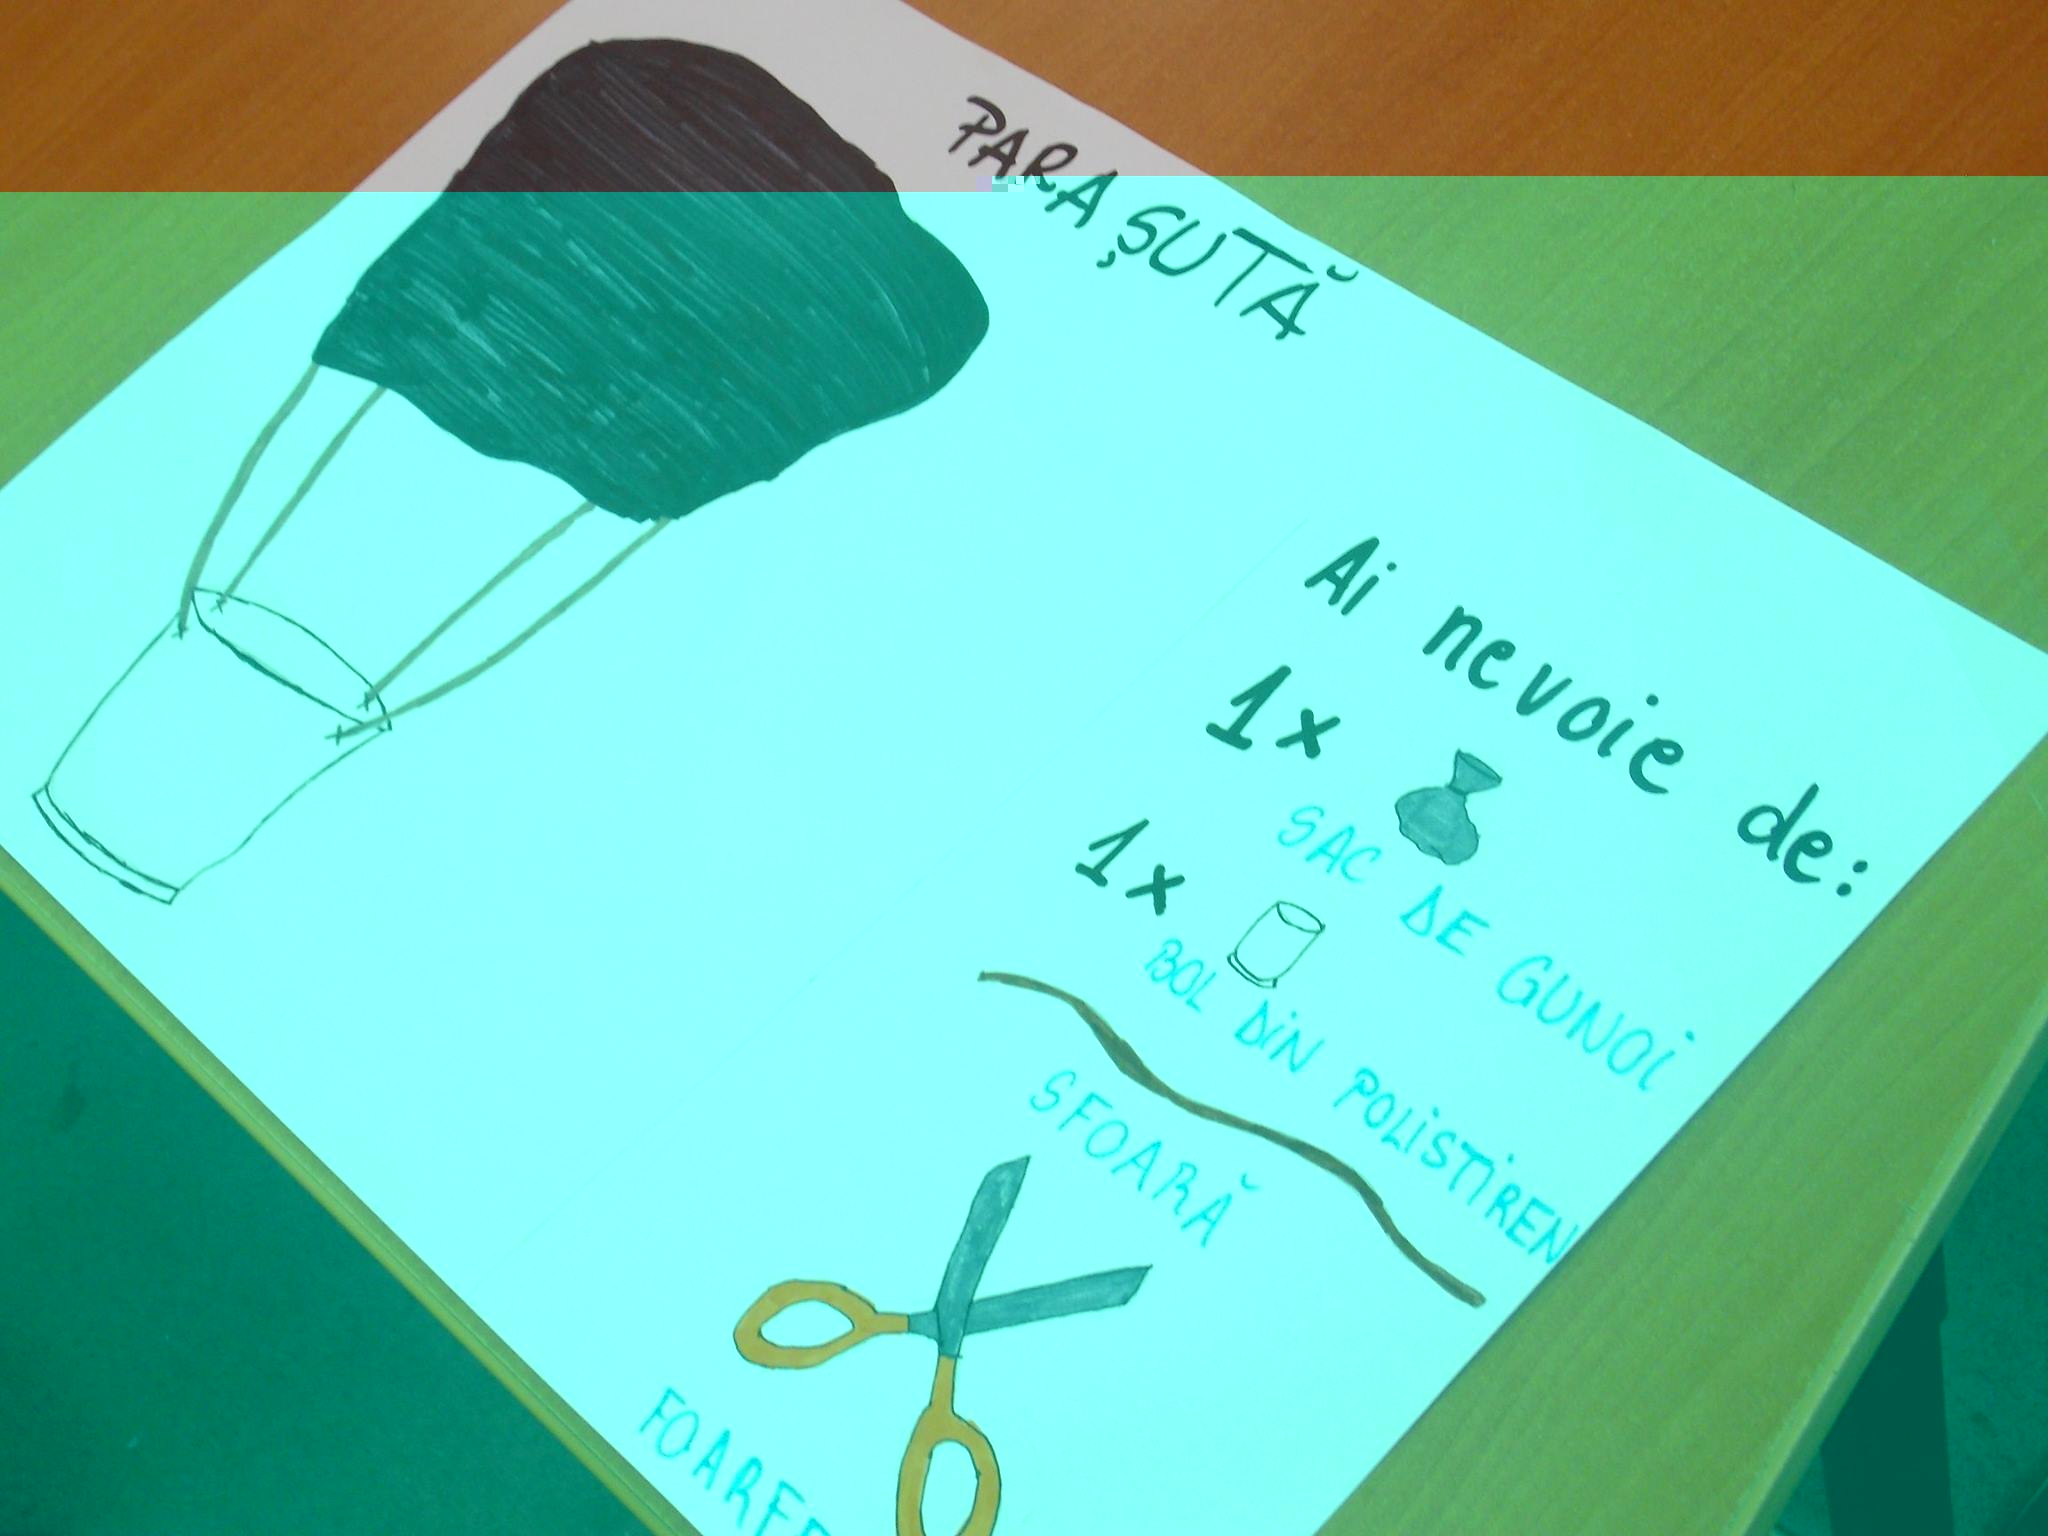 PARAȘUTĂ
Ai nevoie de:
1x
SAC DE GUNOI
1x
BOL DIN POLISTIREN
SFOARĂ